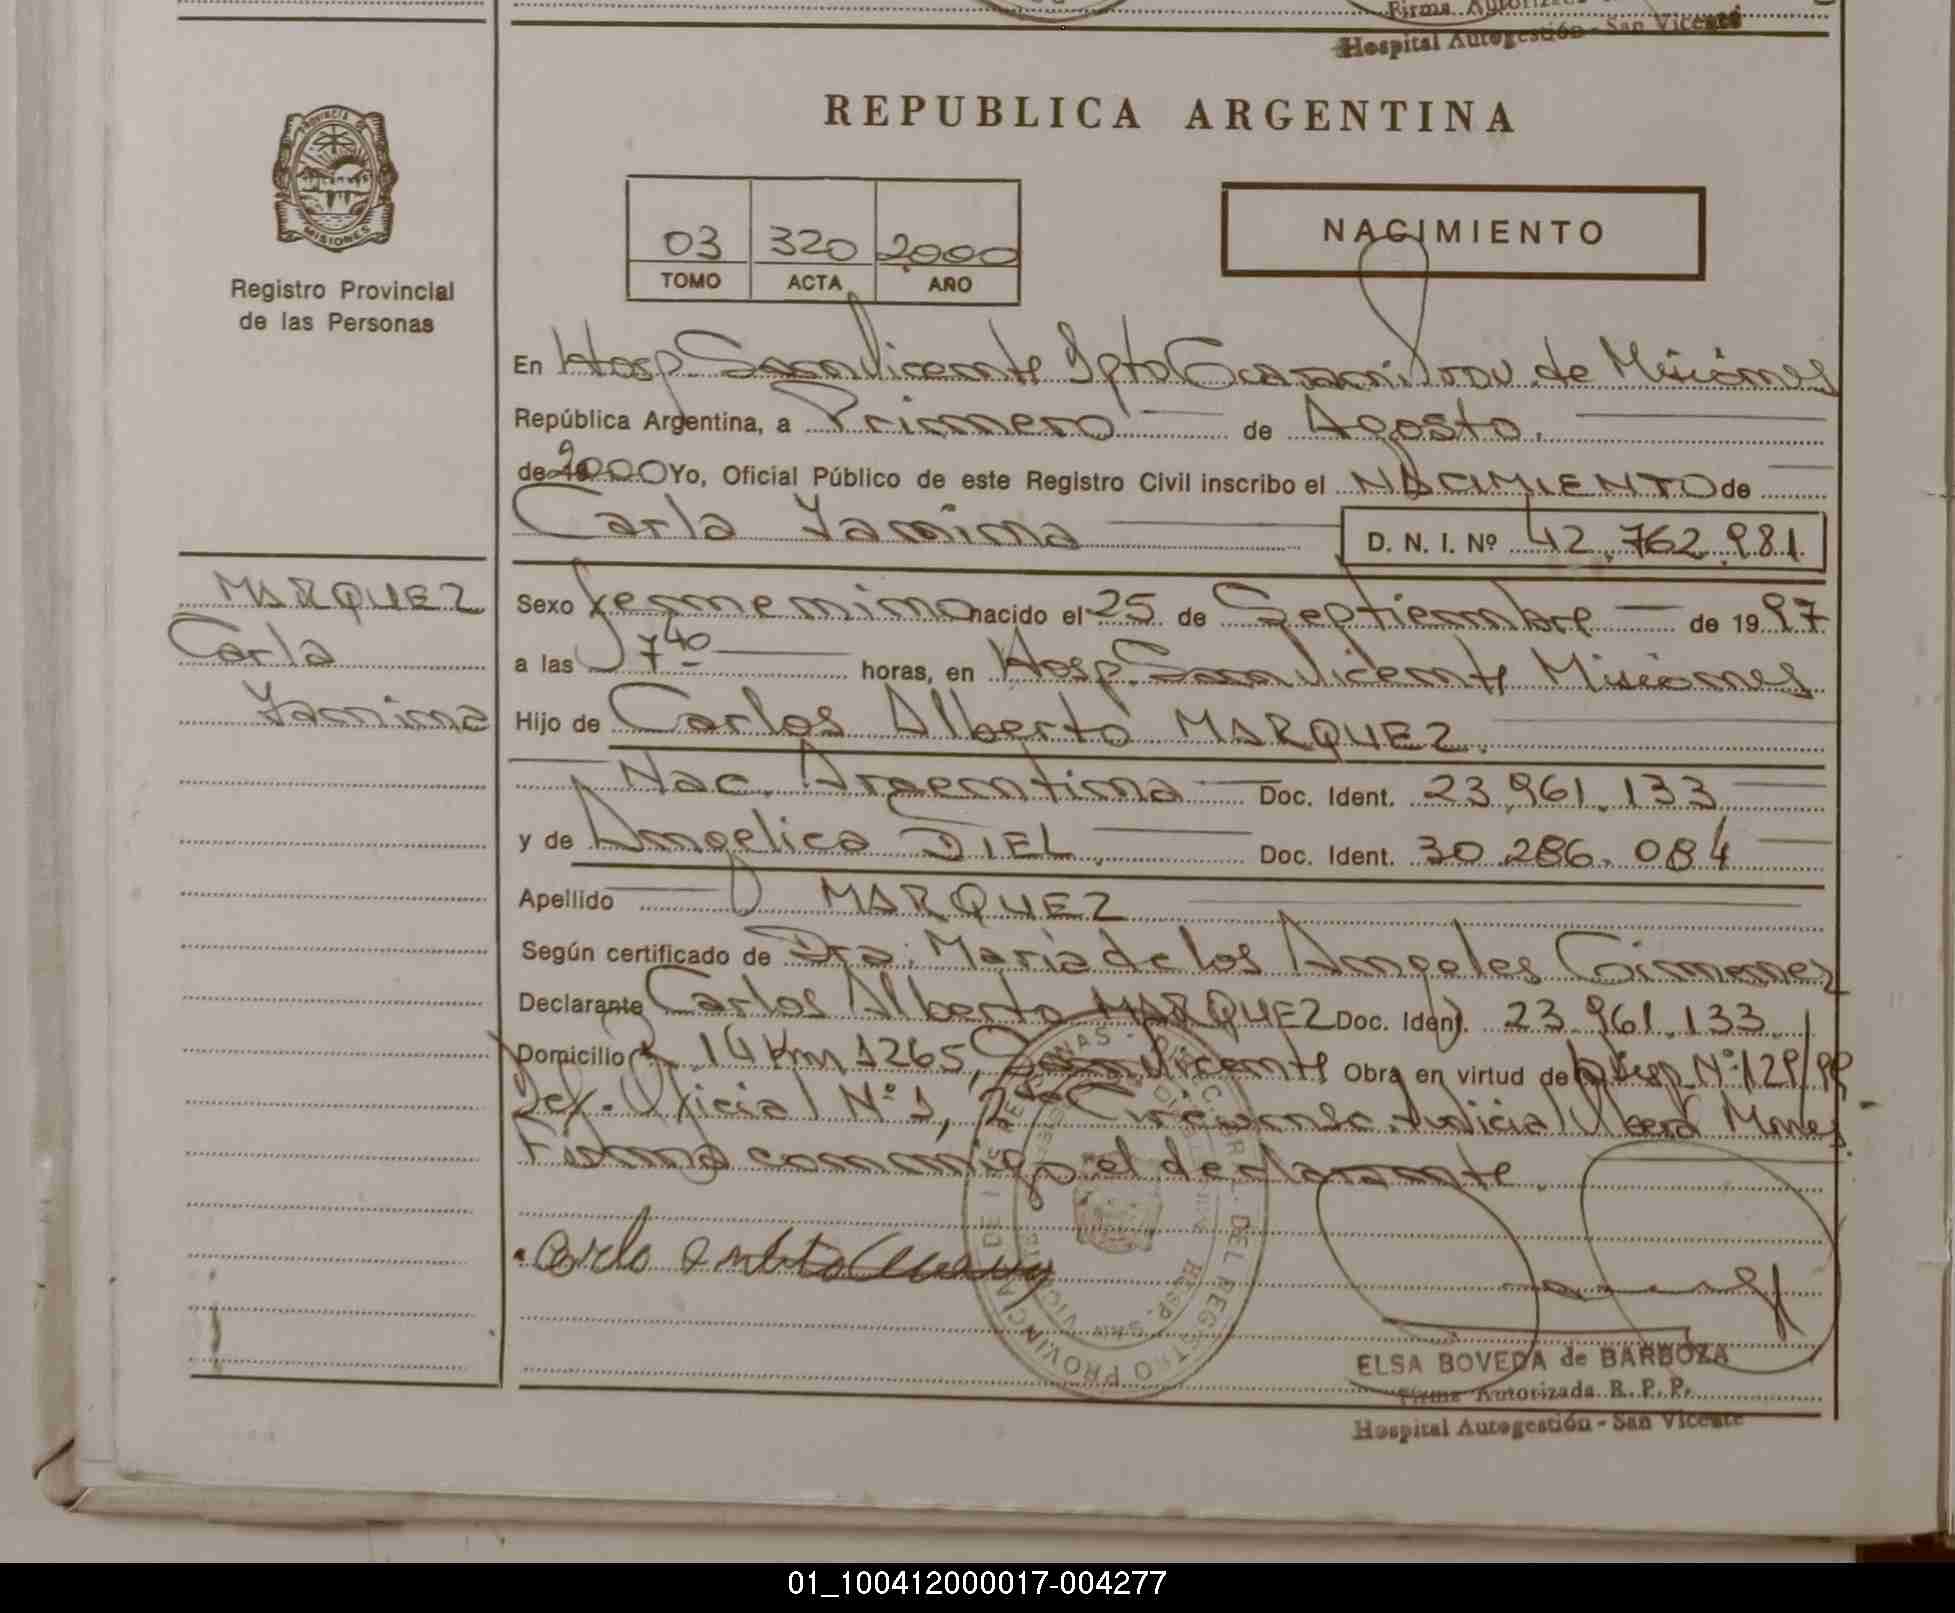 Firma Autorizada
Hospital Autogestión - San Vicente
REPUBLICA ARGENTINA
PROVINCIA DE
MISIONES
Registro Provincial
de las Personas
03 320 2000
TOMO ACTA AÑO
NACIMIENTO
En Hosp. San Vicente Dpto Guaraní. Prov. de Misiones
República Argentina, a Primero de Agosto.
de 2000 Yo, Oficial Público de este Registro Civil inscribo el NACIMIENTO de
Carla Yanina D. N. I. Nº 42.762.981.
MARQUEZ
Carla
Yanina
Sexo femenino nacido el 25 de Septiembre de 1997
a las 7 40 horas, en Hosp. San Vicente Misiones
Hijo de Carlos Alberto MARQUEZ.
Nac. Argentina Doc. Ident. 23.961.133
y de Angelica DIEL. Doc. Ident. 30.286.084
Apellido MARQUEZ
Según certificado de Dra. Maria de los Angeles Gimenez
Declarante Carlos Alberto MARQUEZ Doc. Ident. 23.961.133
Domicilio R. 14 Km 1265, San Vicente Obra en virtud de Disp. Nº 129/99
Def. Oficial Nº 1, 2da Circunsc. Judicial Oberá Mnes.
Firma conmigo el declarante.
REGISTRO PROVINCIAL DE
HOSP. SAN VICENTE
ELSA BOVEDA de BARBOZA
Firma Autorizada R. P. P.
Hospital Autogestión - San Vicente
01_100412000017-004277